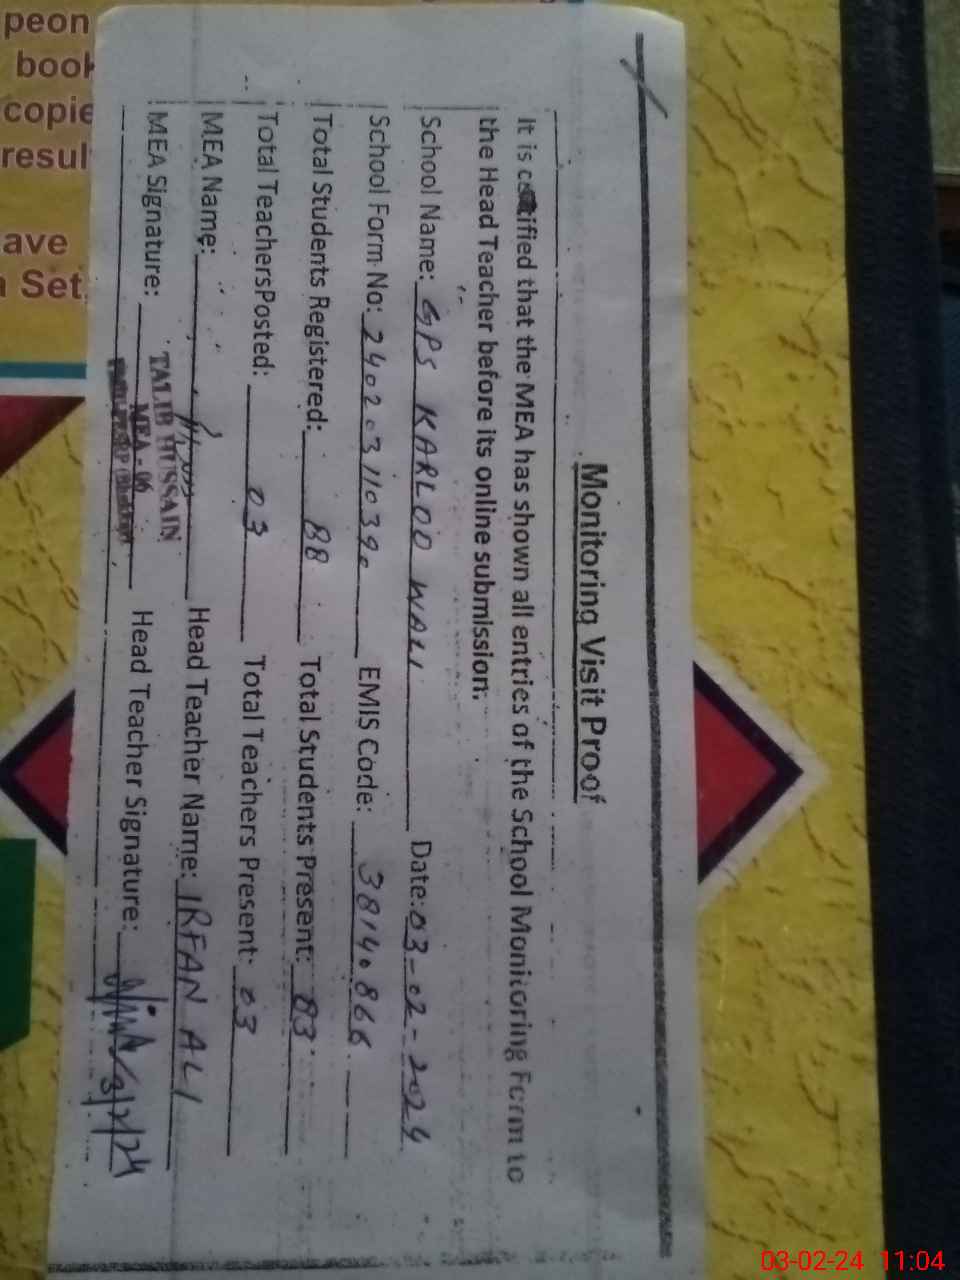 Monitoring Visit Proof
It is certified that the MEA has shown all entries of the School Monitoring Form to
the Head Teacher before its online submission.
School Name: GPS KARLOO WALI Date: 03-02-2024
School Form No: 24020311039 EMIS Code: 38140866
Total Students Registered: 88 Total Students Present: 83
Total TeachersPosted: 03 Total Teachers Present: 03
MEA Name: Head Teacher Name: IRFAN ALI
MEA Signature: Head Teacher Signature: 3/2/24
TALIB HUSSAIN
MEA - 06
peon
book
copie
resul
ave
Set,
03-02-24 11:04